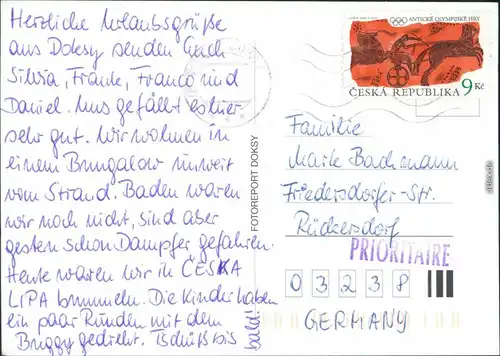 Herzliche Urlaubsgrüße
aus Doksy senden Euch
Silvia, Frank, Franco und
Daniel. Uns gefällt es hier
sehr gut. Wir wohnen in
einem Bungalow unweit
vom Strand. Baden waren
wir noch nicht, sind aber
gestern schon Dampfer gefahren.
Heute waren wir in ČESKA
LIPA bummeln. Die Kinder haben
ein paar Runden mit dem
Buggy gedreht. Tschüß bis
bald!
FOTOREPORT DOKSY
ANTICKÉ OLYMPIJSKÉ HRY
ČESKÁ REPUBLIKA 9 Kč
Familie
Maik Bachmann
Friedersdorfer-Str.
Rückersdorf
PRIORITAIRE
03238
GERMANY